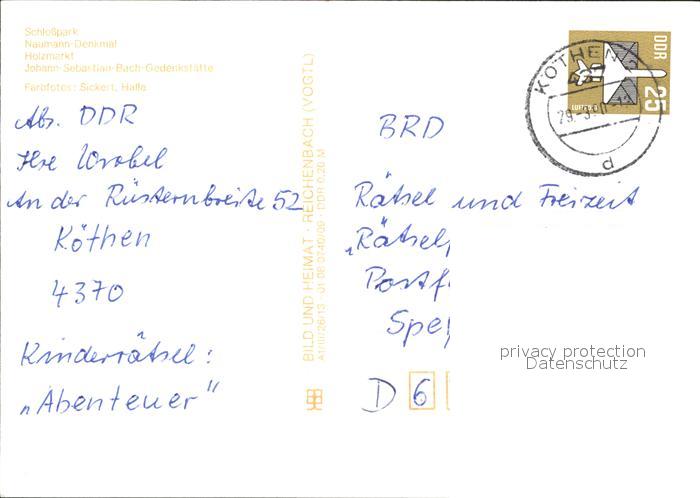 Schloßpark
Naumann-Denkmal
Holzmarkt
Johann-Sebastian-Bach-Gedenkstätte
Farbfotos: Sickert, Halle
Abs. DDR
Ilse Wrobel
An der Rüsternbreite 52
Köthen
4370
Kinderrätsel:
„Abenteuer"
BILD UND HEIMAT · REICHENBACH (VOGTL)
A1/III/26/13 · 01 08 0740/09 · DDR 0,20 M
DDR
25
KÖTHEN
437
d
BRD
Rätsel und Freizeit
„Rätsel,
Postf
Spey
D 6
privacy protection
Datenschutz